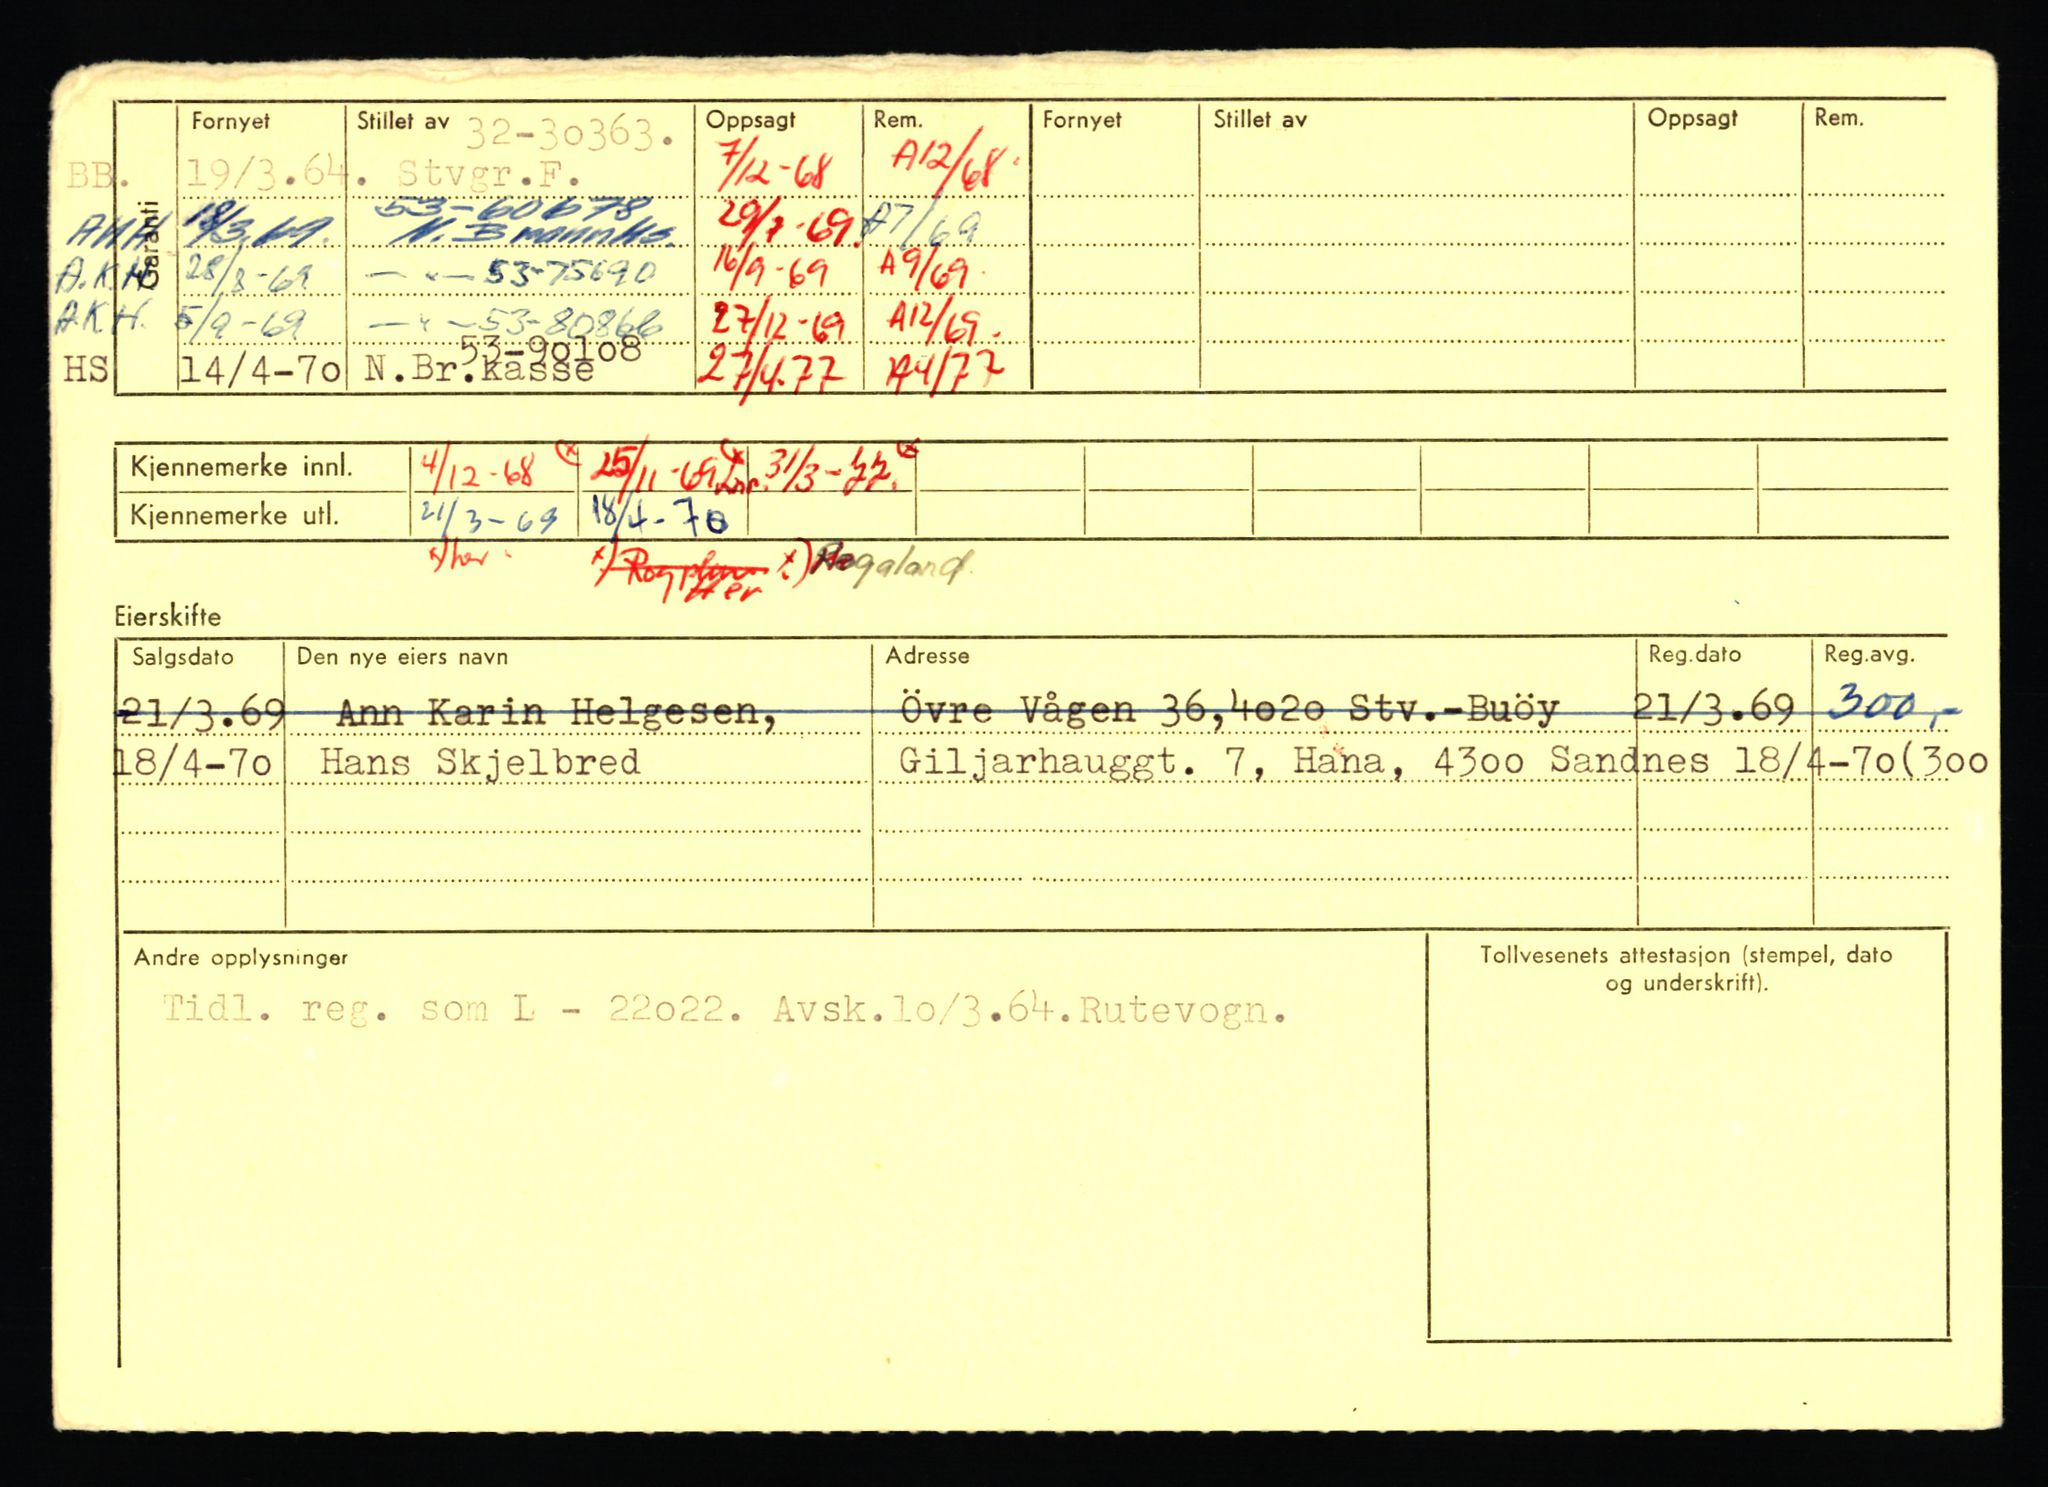 Garanti
Fornyet Stillet av Oppsagt Rem. Fornyet Stillet av Oppsagt Rem.
32-30363.
BB. 19/3.64. Stvgr.F. 7/12-68 A12/68.
53-60678
18/3.69. 29/7-69. A7/69
A.K.H. 28/8-69 — " — 53-75690 16/9-69 A9/69.
A.K.H. 5/9-69 — " — 53-80866 27/12-69 A12/69.
53-90108
HS 14/4-70 N.Br.kasse 27/4.77 A4/77
Kjennemerke innl. 4/12-68 (x 25/11-69 (x 31/3-77. (x
Kjennemerke utl. 21/3-69 18/4-70
x) her x) her x) Rogaland.
Eierskifte
Salgsdato Den nye eiers navn Adresse Reg.dato Reg.avg.
21/3.69 Ann Karin Helgesen, Övre Vågen 36,4020 Stv.-Buöy 21/3.69 300,-
18/4-70 Hans Skjelbred Giljarhauggt. 7, Hana, 4300 Sandnes 18/4-70(300
Andre opplysninger
Tollvesenets attestasjon (stempel, dato
og underskrift).
Tidl. reg. som L - 22022. Avsk.10/3.64.Rutevogn.